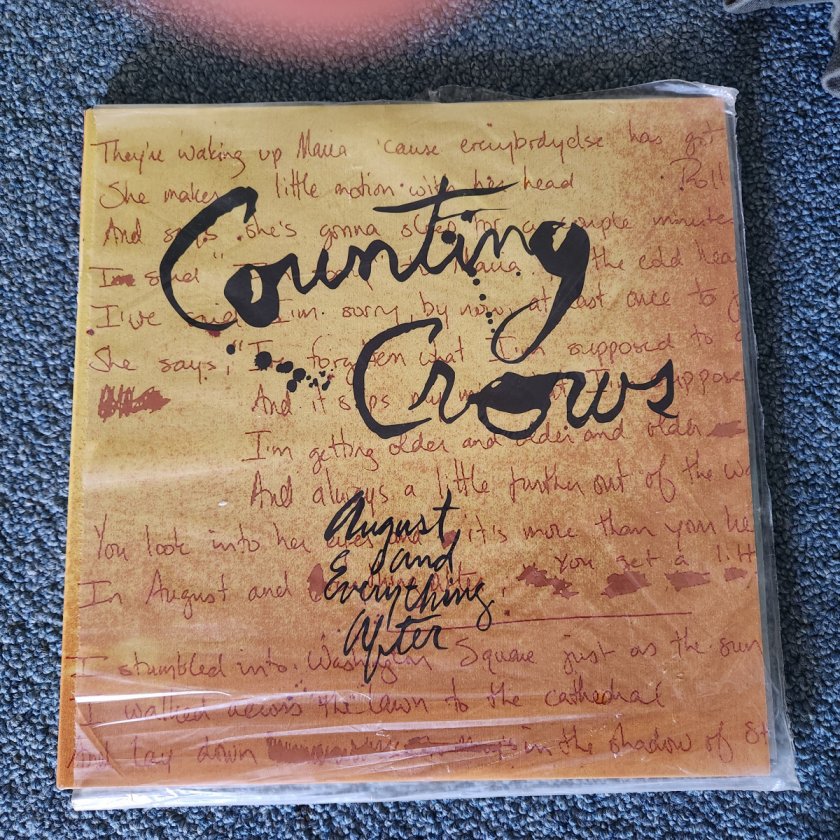 They're waking up Maria 'cause everybody else has got
She makes little motion with her head Roll
And says she's gonna sleep for a couple minutes
Counting
I'm said "I'm Maria the cold
I've said I'm sorry by now, at last once to
She says, "I'm forgotten what I'm supposed to
Crows
And it slips my
I'm getting older and older and older
And always a little further out of the
August
You look into her eyes and it's more than your
and
Everything
In August and You get a
After
I stumbled into Washington Square just as the sun
I walked across the lawn to the cathedral
And lay down in the shadow of St